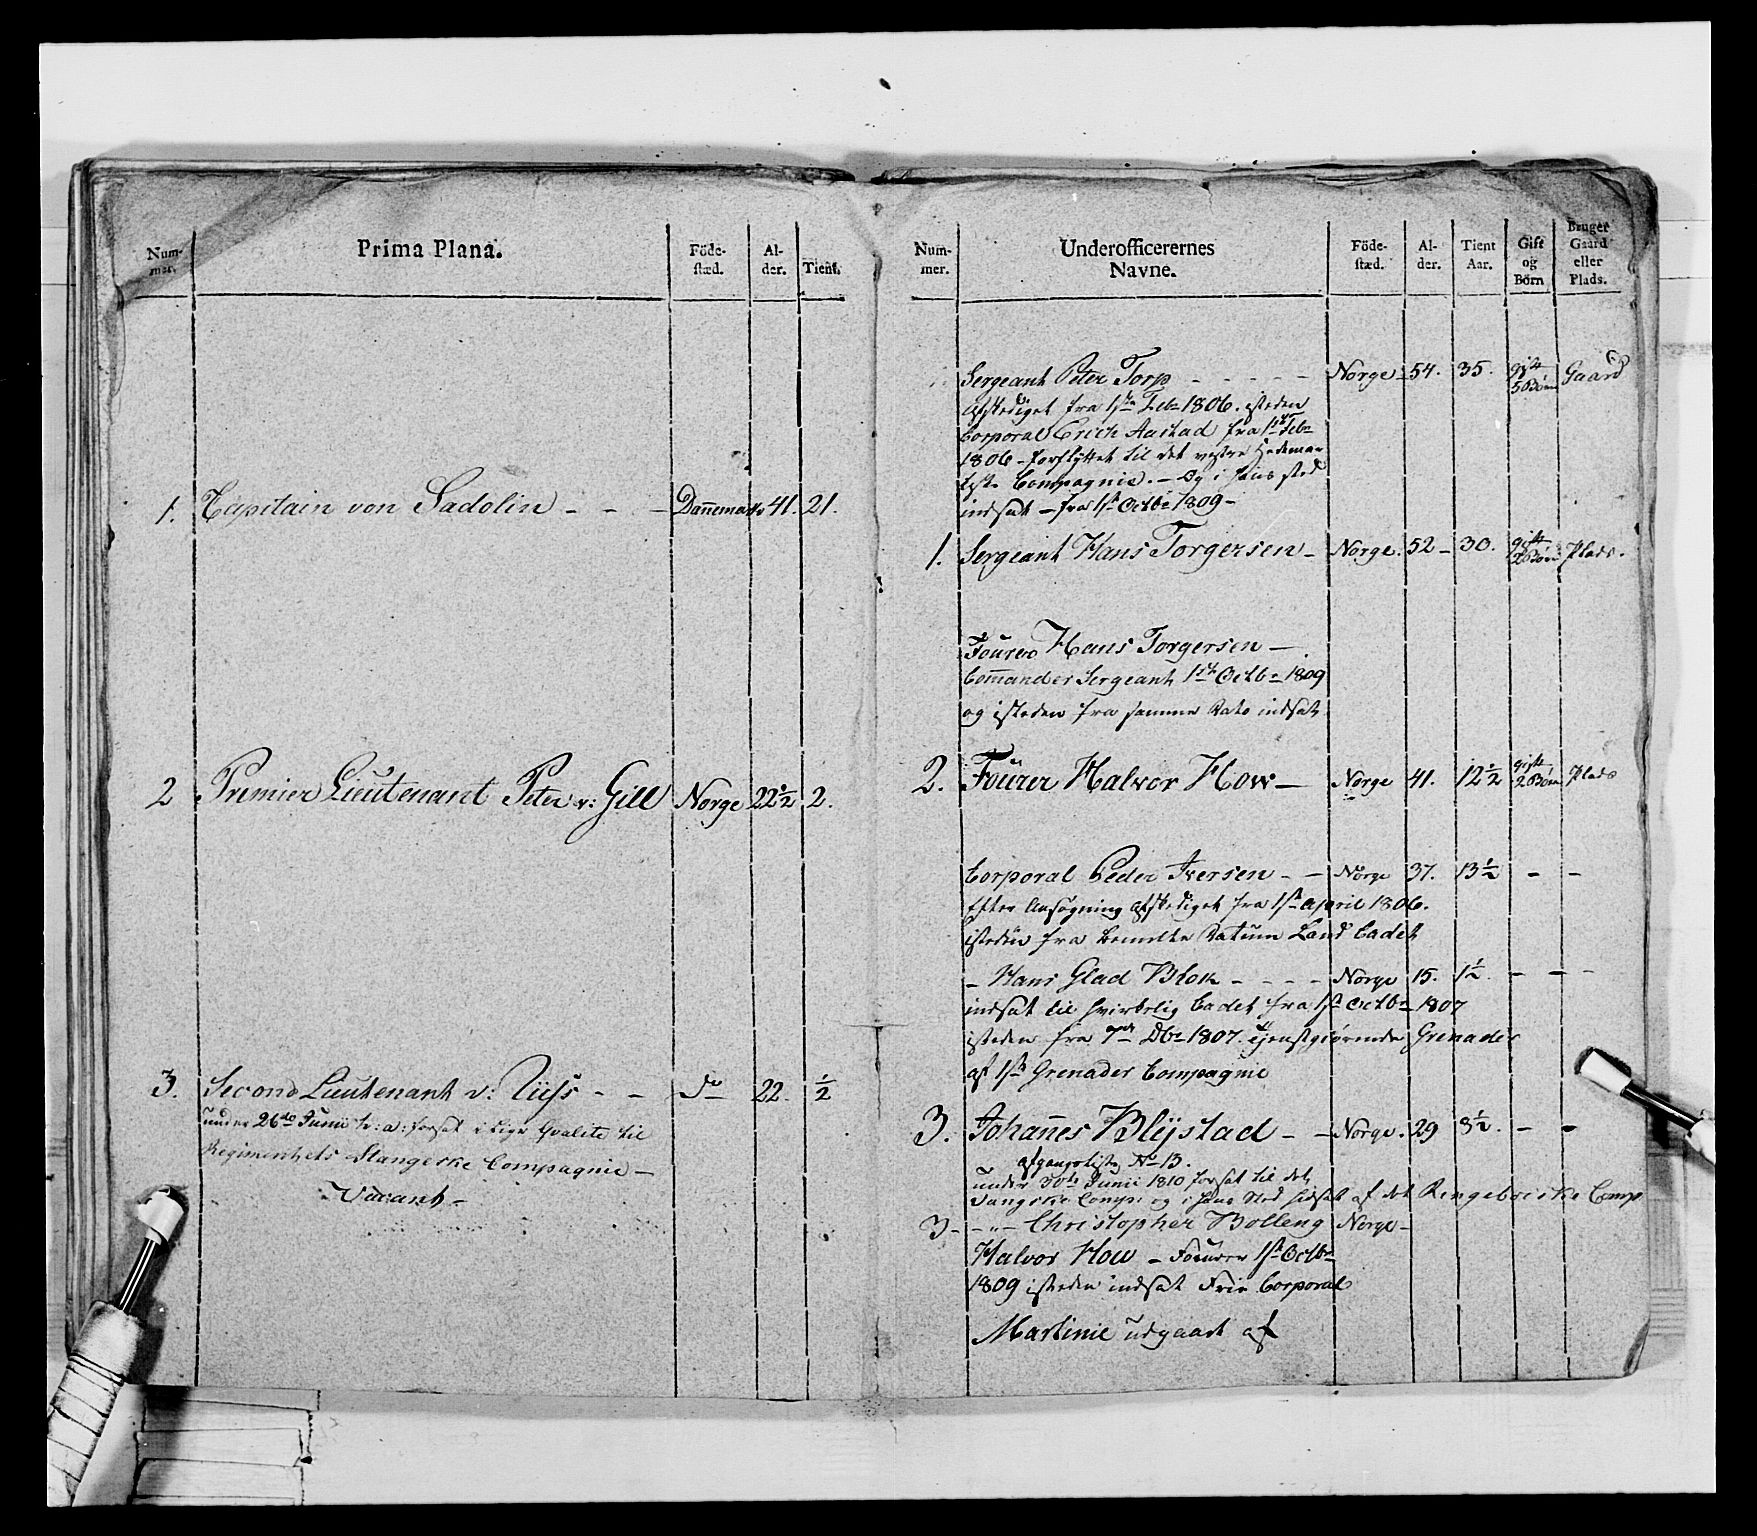 Num-
mer.
Prima Plana.
Föde-
stæd.
Al-
der.
Tient.
1. Capitain von Sadolin - - - Dannemark 41. 21.
2 Premier Lieutenant Peter v: Gill Norge 22½ 2.
3. Second Lieutenant v: - - do 22. ½
under 26de Junii h: a: forsat i lige Qvalite til
Regimentets Stangeske Compagnie -
Vacant -
Num-
mer.
Underofficerernes
Navne.
Föde-
stæd.
Al-
der.
Tient
Aar.
Gift
og
Børn
Bruger
Gaard
eller
Plads.
Sergeant Peter Torp - - - - - Norge - 54. 35. gift 5 Børn Gaard
afskediget fra 1ste Febr 1806. isteden
Corporal Erich Aastad fra 1ste Febr
1806 - forflyttet til det vestre Hedemar
kske Compagnie. - Og i hans sted
indsat - fra 1ste Octbr 1809 -
1. Sergeant Hans Torgersen - Norge. 52 - 30. gift 2 Børn Plads.
Fourer Hans Torgersen -
Commander Sergeant 1ste Octbr 1809
og isteden fra samme Dato indsat
2. Fourer Halvor How - Norge 41. 12½ gift 2 Børn Plads
Corporal Peder Iversen - - Norge 37. 13½ - -
Efter Ansøgning afskediget fra 1ste April 1806.
isteden fra bemelte Datum Land Cadet
- Hans Glad Blok - - - - Norge 15. 1½. - - -
indsat til virkelig Cadet fra 1ste Octbr 1807
isteden fra 7de Dbr 1807. tienstgiørende Grenader
af 1ste Grenader Compagnie
3. Johannes Blijstad - - Norge. 29 8½. - -
afgangsliste No 13.
under 30te Junii 1810 forsat til det
Vangske Comp: og i hans Sted hidsat af det Ringeboeske Comp
3 - - " - Christopher Bolleng Norge -
Halvor How - Fourer 1ste Octbr
1809 isteden indsat Frie Corporal
Martinie udgaaet af